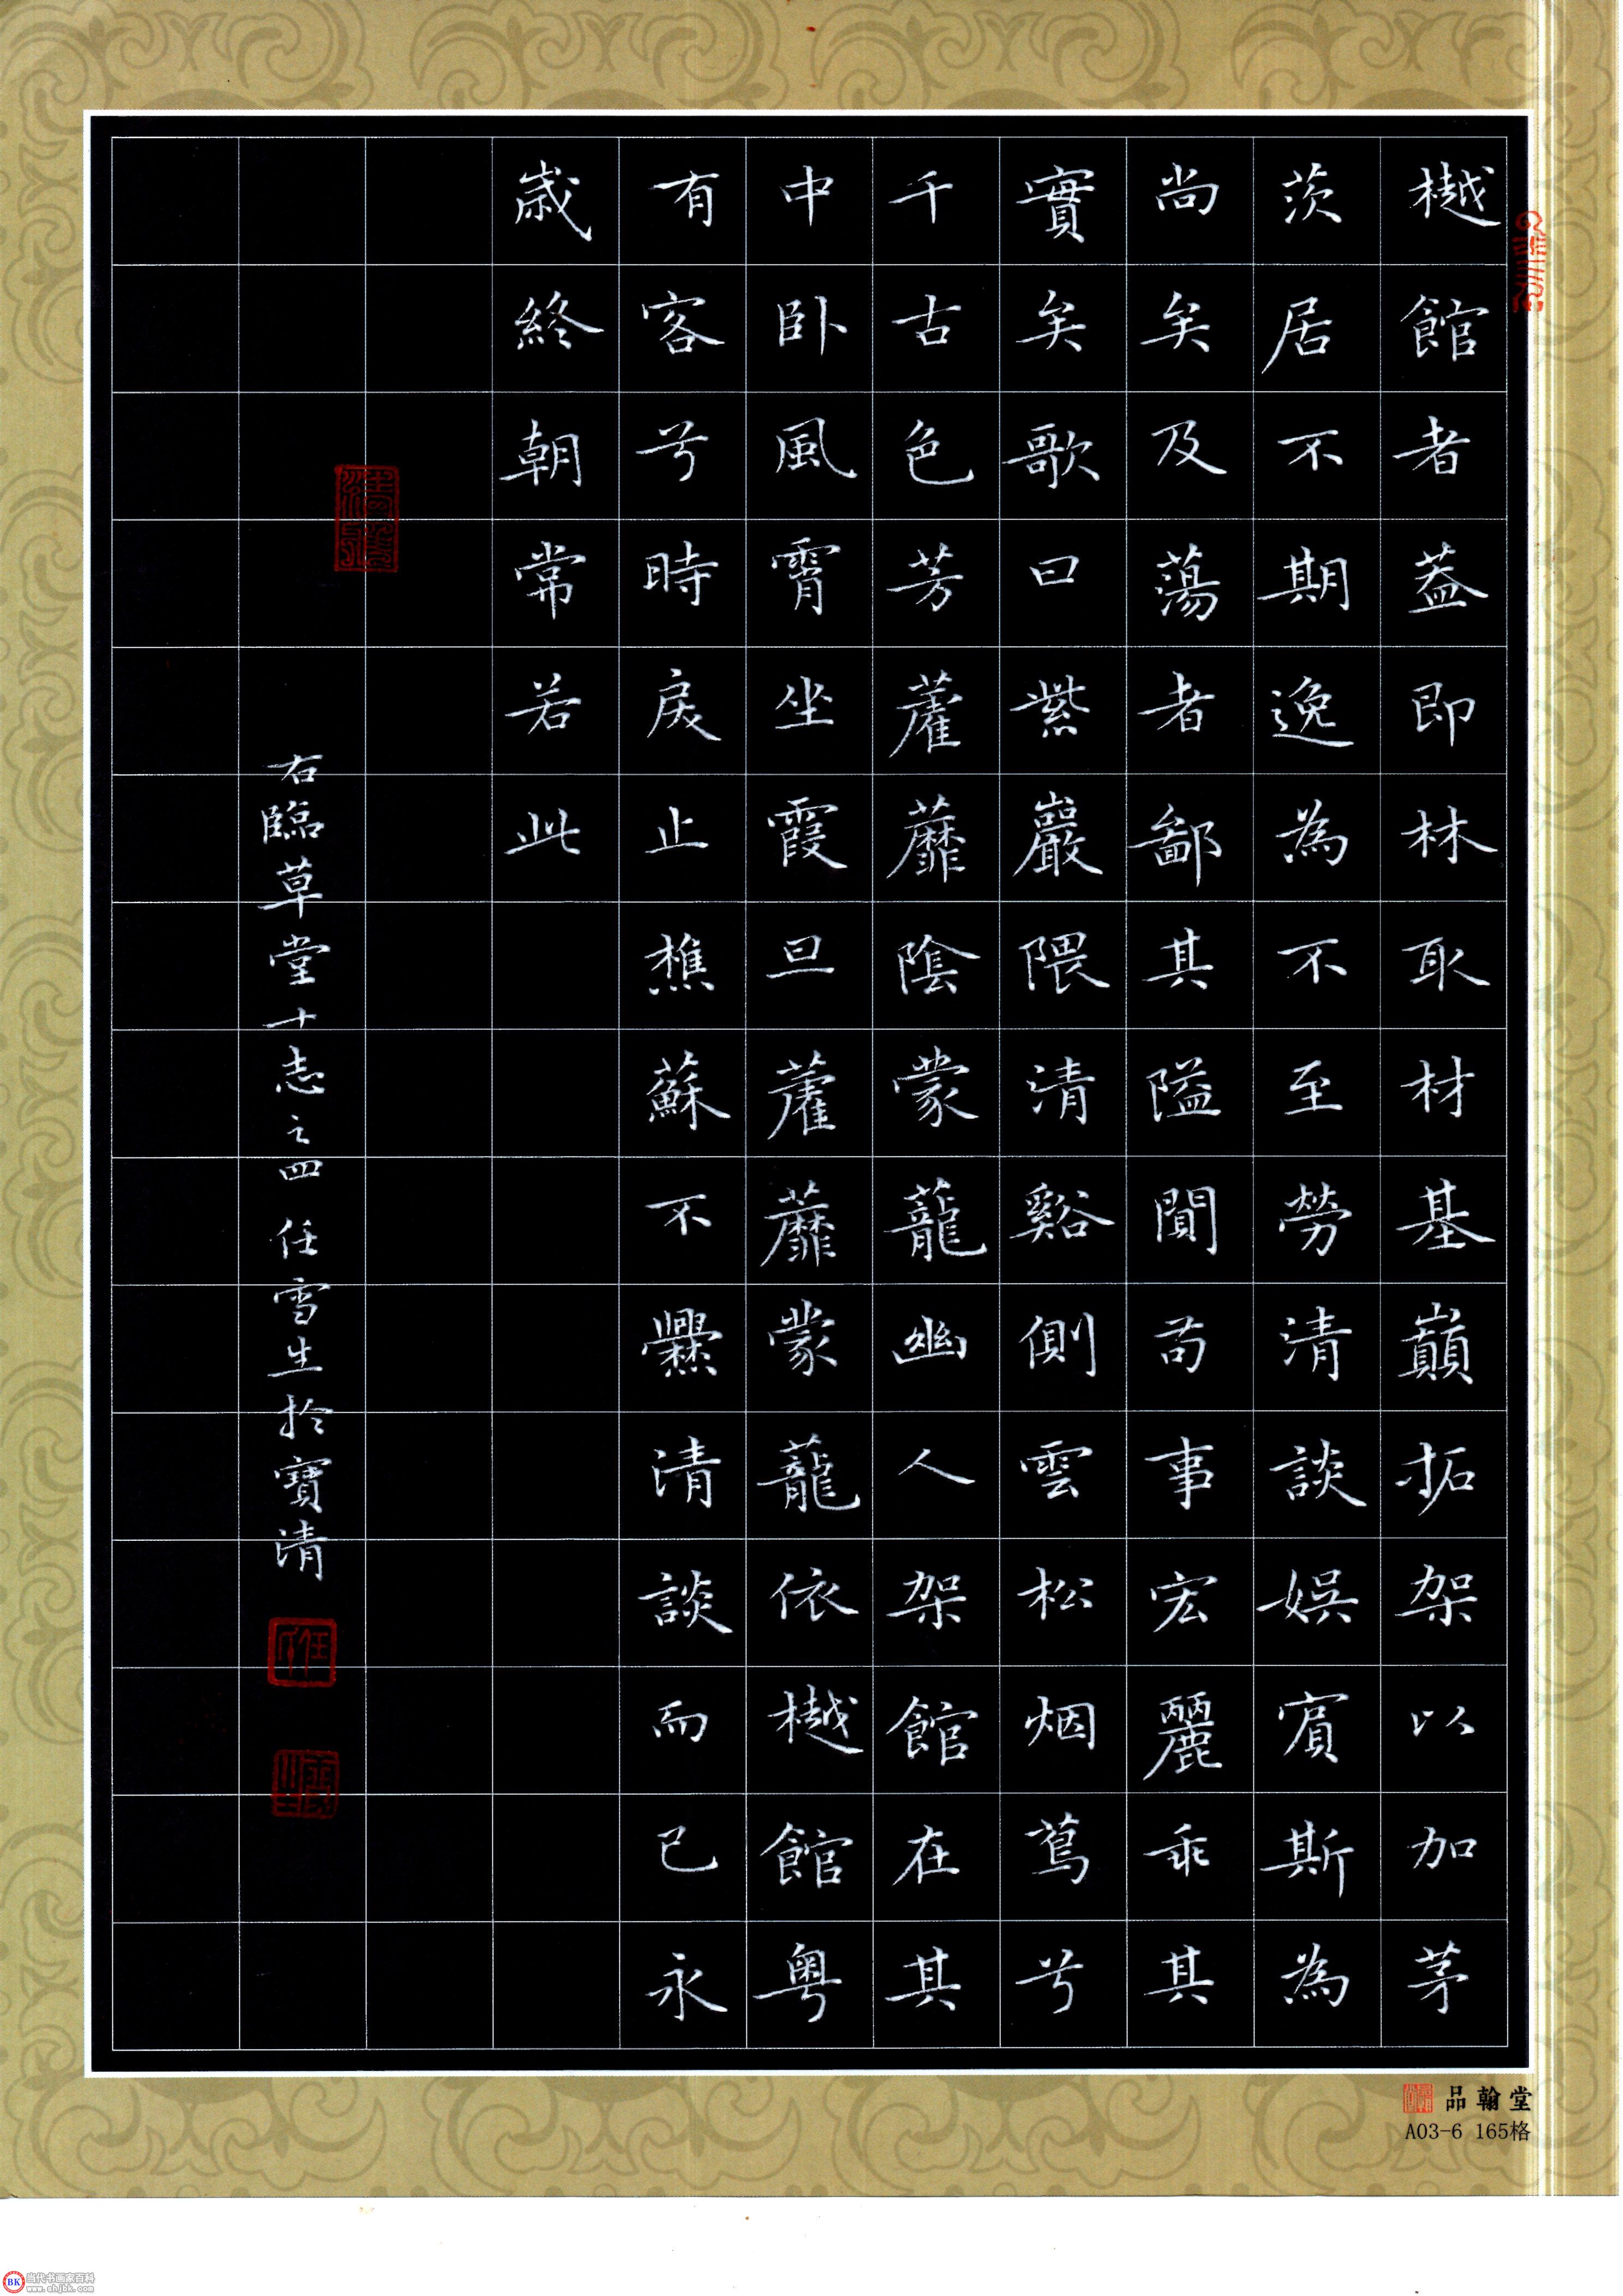 樾館者蓋即林取材基巔拓架以加茅
茨居不期逸為不至勞清談娛賔斯為
尚矣及蕩者鄙其隘闃苟事宏麗乖其
實矣歌曰紫巖隈清谿側雲松烟蔦兮
千古色芳藿蘼陰蒙蘢幽人架館在其
中卧風霄坐霞旦藿蘼蒙蘢依樾館粤
有客兮時戾止樵蘇不爨清談而已永
歳終朝常若此
右臨草堂十志之四 任雪生扵寶清
品翰堂
A03-6 165格
BK 当代书画家百科
www.shjbk.com